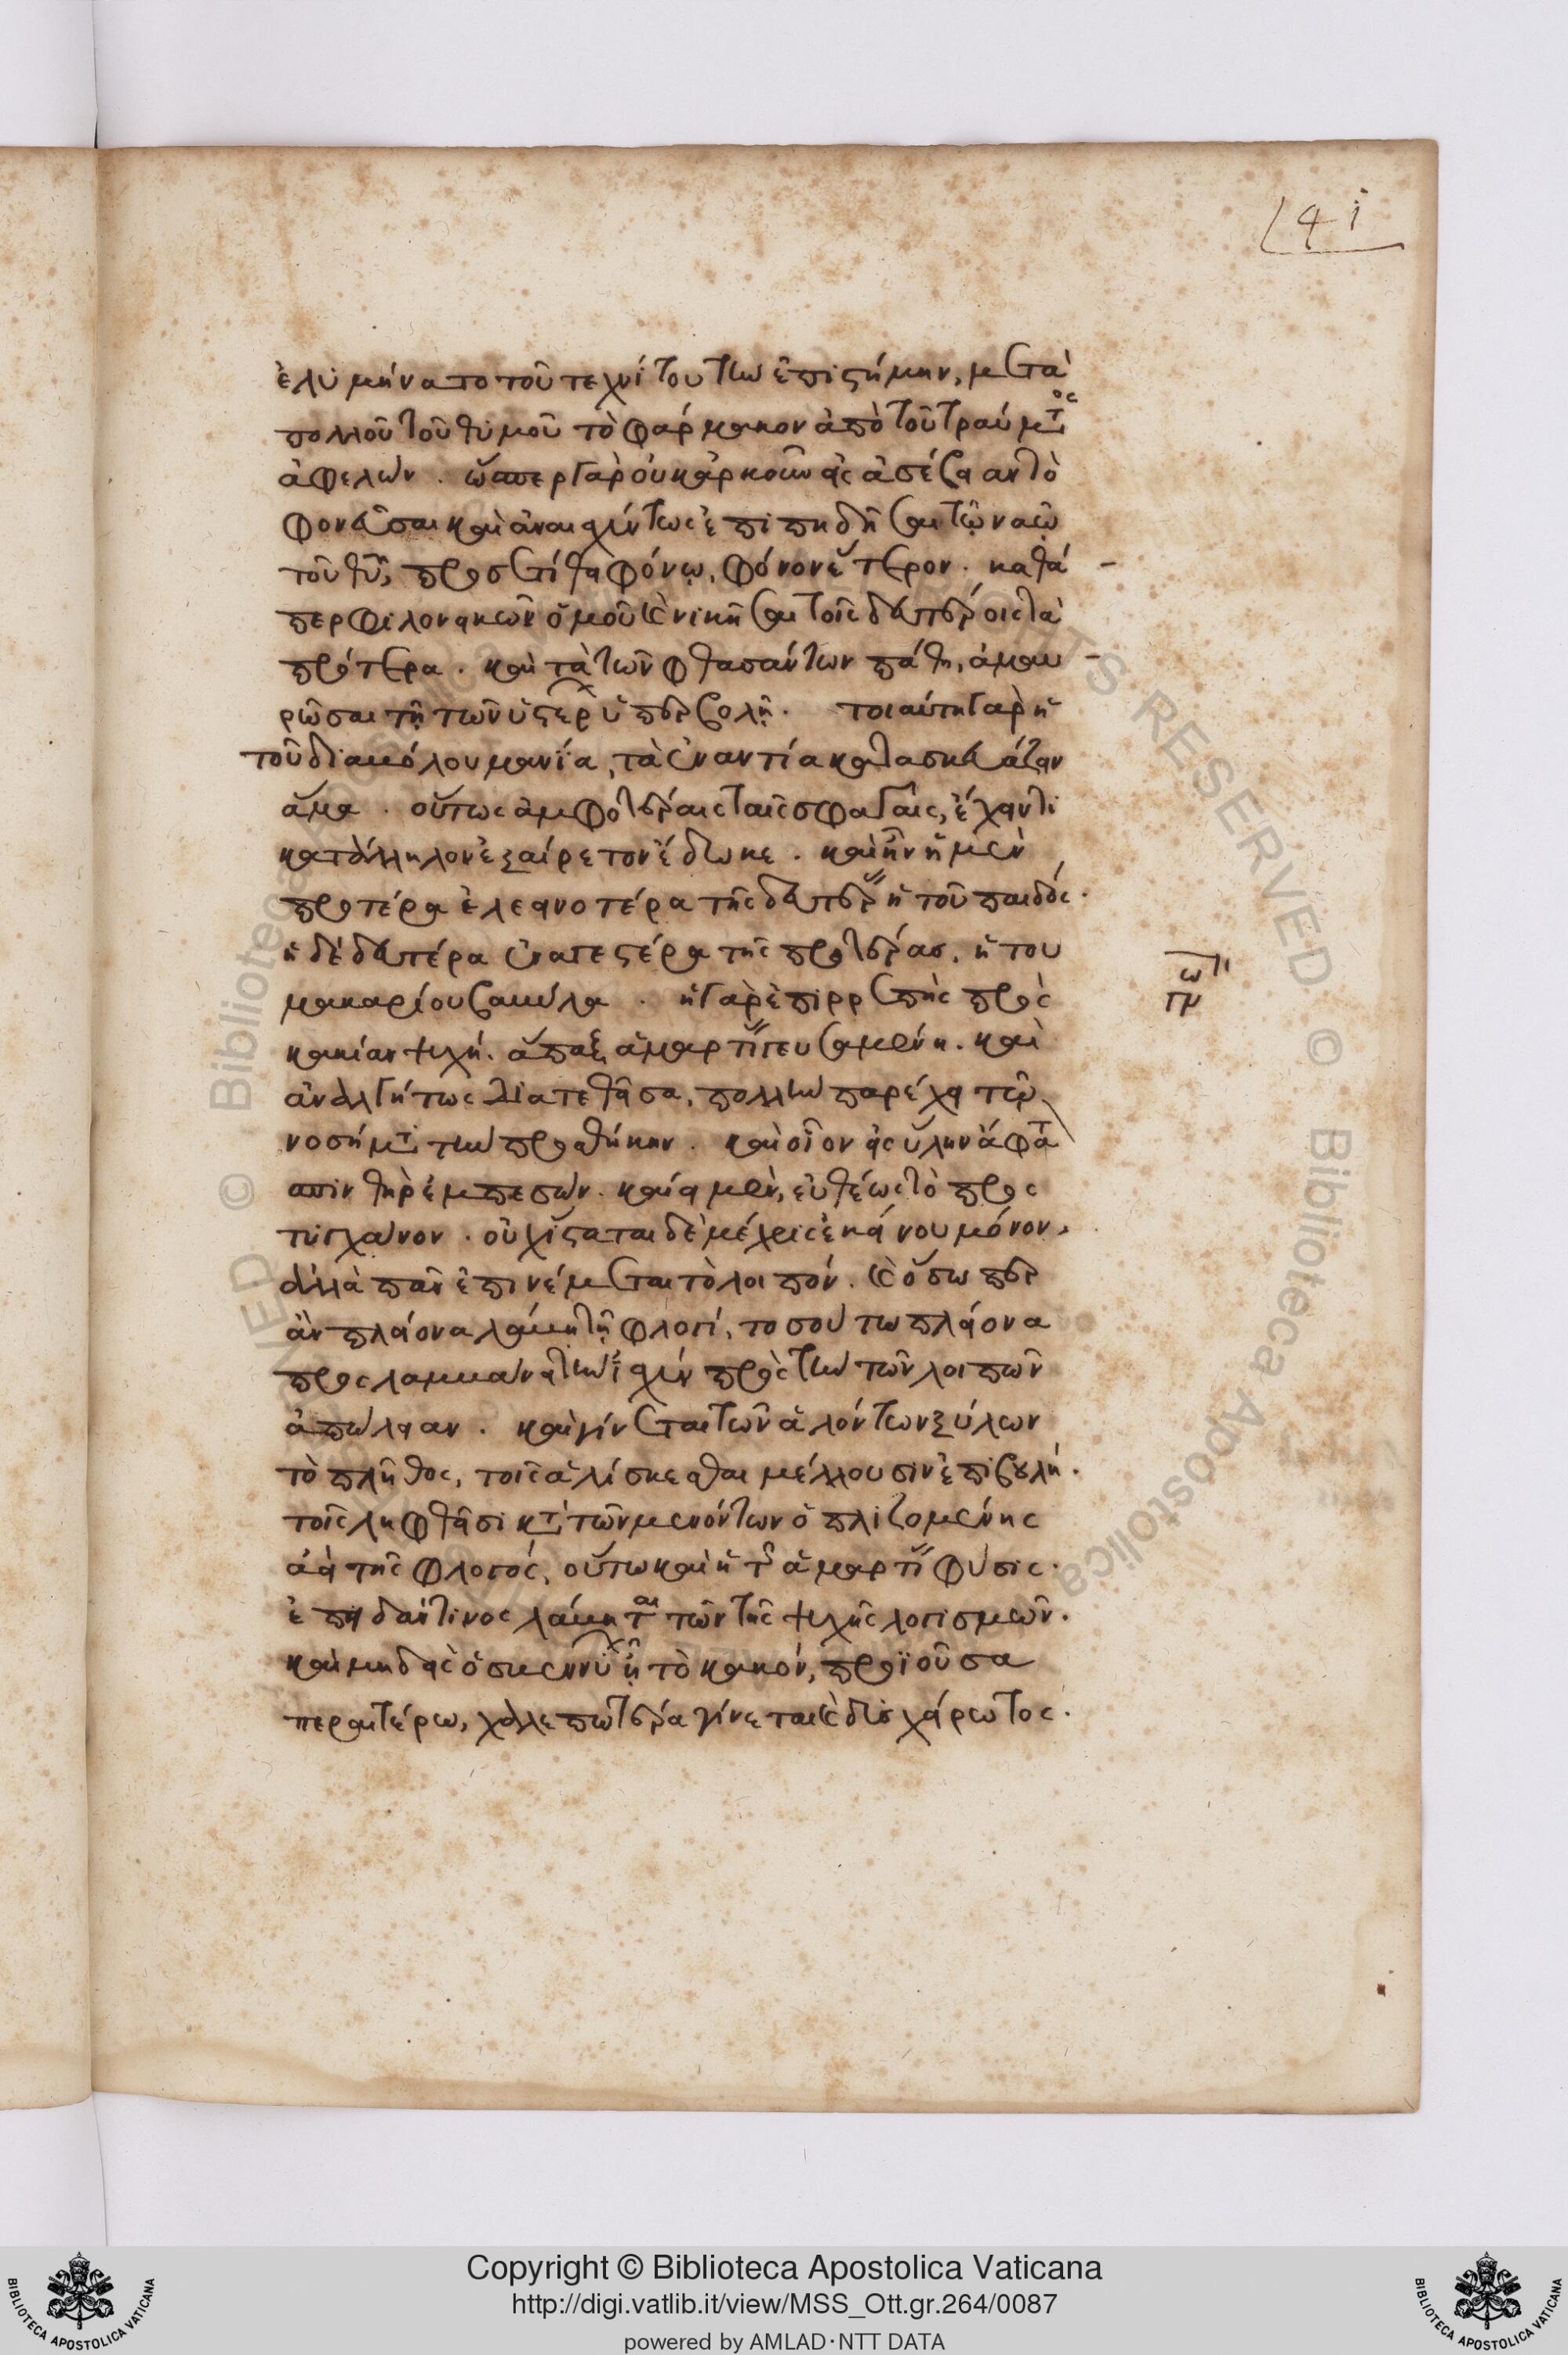 41
ἐλυμήνατο τοῦ τεχνίτου τὴν ἐπιστήμην, μετὰ
πολλοῦ τοῦ θυμοῦ τὸ φάρμακον ἀπὸ τοῦ τραύματος
ἀφελών. ὥσπερ γὰρ οὐκ ἀρκοῦν εἰς ἀσέβειαν τὸ
φονεῦσαι καὶ ἀναισχύντως ἐπιπηδῆσαι τῷ ναῷ
τοῦ θυ, προστίθει φόνω, φόνον ἕτερον. καθά
περ φιλονεικῶν ὁμοῦ καὶ νικῆσαι τοῖς δευτέροις τὰ
πρότερα. καὶ τὰ τῶν φθασάντων πάθη, ἀμαυ
ρῶσαι τῇ τῶν ὕστερον ὑπερβολῇ. τοιαύτη γὰρ ἡ
τοῦ διαβόλου μανία, τὰ ἐναντία κατασκευάζειν
ἅμα. οὕτως ἀμφοτέραις ταῖς σφαγαῖς, ἔχειν τι
κατάλληλον ἐξαίρετον ἔδωκε. καὶ ἦν ἡ μὲν
προτέρα ἐλεεινοτέρα τῆς δευτέρας ἡ τοῦ παιδός.
ἡ δὲ δευτέρα ἐναγεστέρα τῆς προτέρας, ἡ του
μακαρίου βαβύλα. ἡ γὰρ ἐπιρρεπὴς πρὸς
κακίαν ψυχή. ἅπαξ ἁμαρτίας γευσαμένη. καὶ
ἀναλγήτως διατεθεῖσα, πολλὴν παρέχει τῷ
νοσήματι τὴν προσθήκην. καὶ οἷον εἰς ὕλην ἄφατον
σπινθὴρ ἐμπεσών. καίει μὲν, εὐθέως τὸ προς
τυγχάνον. οὐχ ἵσταται δὲ μέχρις ἐκείνου μόνον,
ἀλλὰ πᾶν ἐπινέμεται τὸ λοιπόν. καὶ ὅσω περ
ἂν πλείονα λάβη τῇ φλογί, τοσούτω πλείονα
προσλαμβάνει τὴν ἰσχύν πρὸς τὴν τῶν λοιπῶν
ἀπώλειαν. καὶ γίνεται τῶν ἁλόντων ξύλων
τὸ πλῆθος, τοῖς ἁλίσκεσθαι μέλλουσιν ἐπιβουλή.
τοῖς ληφθεῖσι κατὰ τῶν μενόντων ὁπλιζομένης
ἀεὶ τῆς φλογός, οὕτω καὶ ἡ τῆς ἁμαρτίας φύσις.
ἐπειδάν τινος λάβηται τῶν τῆς ψυχῆς λογισμῶν.
καὶ μηδεὶς ὁ σβεννύων ἦ τὸ κακόν, προϊοῦσα
περαιτέρω, χαλεπωτέρα γίνεται καὶ δυσχείρωτος.
Copyright © Biblioteca Apostolica Vaticana
http://digi.vatlib.it/view/MSS_Ott.gr.264/0087
powered by AMLAD·NTT DATA
BIBLIOTECA APOSTOLICA VATICANA
BIBLIOTECA APOSTOLICA VATICANA